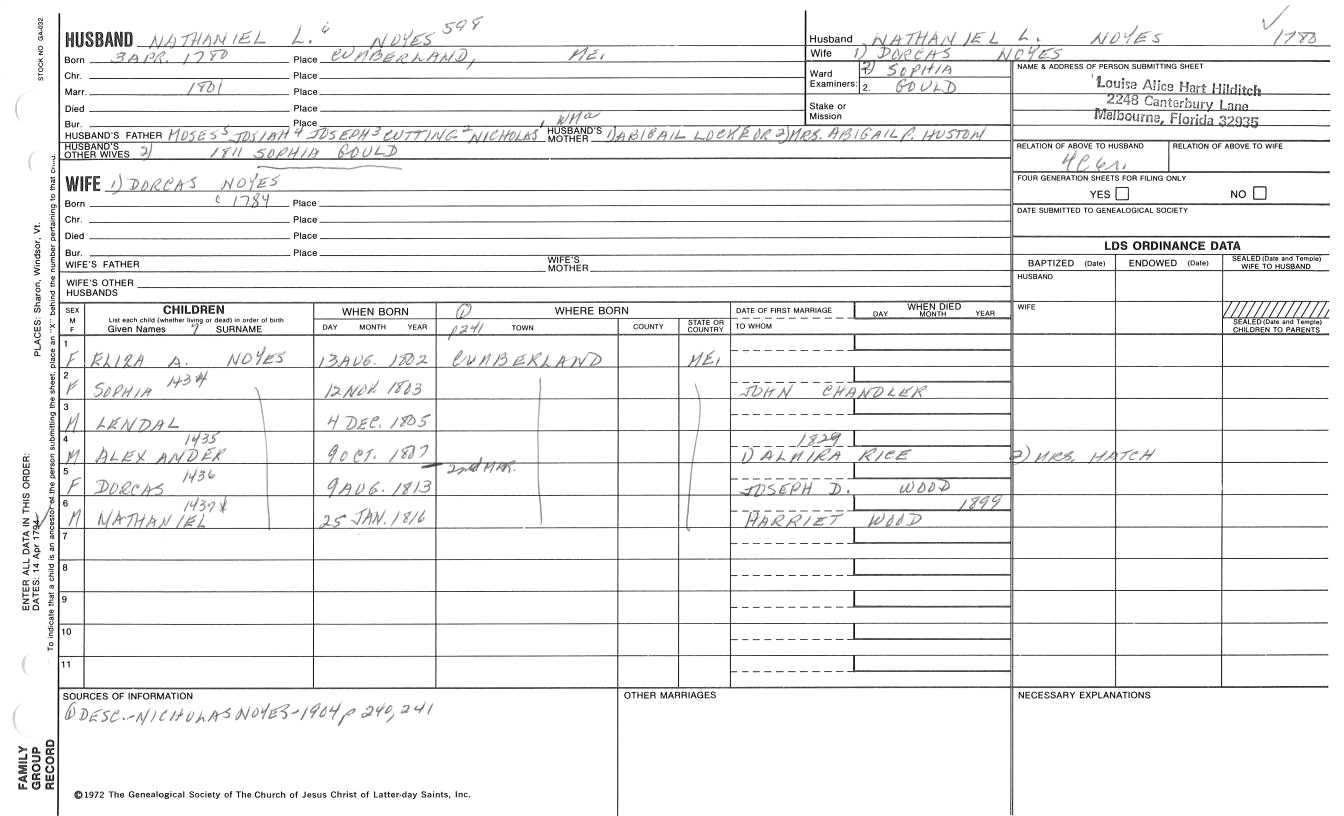 STOCK NO. GA-032
HUSBAND NATHANIEL L. 6 NOYES 598
Born 3 APR. 1780 Place CUMBERLAND, ME.
Chr. Place
Marr. 1801 Place
Died Place
Bur. Place
HUSBAND'S FATHER MOSES 5 JOSIAH 4 JOSEPH 3 CUTTING 2 NICHOLAS 1 WMa HUSBAND'S MOTHER 1) ABIGAIL LOCK FOR 2) MRS. ABIGAIL P. HUSTON
HUSBAND'S OTHER WIVES 2) 1811 SOPHIA GOULD
WIFE 1) DORCAS NOYES
Born c 1784 Place
Chr. Place
Died Place
Bur. Place
WIFE'S FATHER WIFE'S MOTHER
WIFE'S OTHER HUSBANDS
Husband NATHANIEL L. NOYES 1780
Wife 1) DORCAS NOYES
Ward Examiners: 2) SOPHIA
2. GOULD
Stake or Mission
NAME & ADDRESS OF PERSON SUBMITTING SHEET
Louisa Alice Hart Hilditch
2248 Canterbury Lane
Melbourne, Florida 32935
RELATION OF ABOVE TO HUSBAND RELATION OF ABOVE TO WIFE
FOUR GENERATION SHEETS FOR FILING ONLY
YES NO
DATE SUBMITTED TO GENEALOGICAL SOCIETY
LDS ORDINANCE DATA
BAPTIZED (Date) ENDOWED (Date) SEALED (Date and Temple) WIFE TO HUSBAND
HUSBAND
WIFE
SEALED (Date and Temple) CHILDREN TO PARENTS
SEX M F CHILDREN WHEN BORN ① WHERE BORN DATE OF FIRST MARRIAGE WHEN DIED
List each child (whether living or dead) in order of birth
Given Names 7 SURNAME DAY MONTH YEAR p241 TOWN COUNTY STATE OR COUNTRY TO WHOM DAY MONTH YEAR
1 F ELIZA A. NOYES 13 AUG. 1802 CUMBERLAND ME.
2 F SOPHIA 1434 12 NOV. 1803 JOHN CHANDLER
3 M LENDAL 4 DEC. 1805
4 M ALEXANDER 1435 9 OCT. 1807 1829 1) ALMIRA RICE 2) MRS. HATCH
2nd MAR.
5 F DORCAS 1436 9 AUG. 1813 JOSEPH D. WOOD
6 M NATHANIEL 1437 25 JAN. 1816 HARRIET WOOD 1899
7
8
9
10
11
SOURCES OF INFORMATION OTHER MARRIAGES NECESSARY EXPLANATIONS
① DESC.-NICHOLAS NOYES-1904 p 240, 241
©1972 The Genealogical Society of The Church of Jesus Christ of Latter-day Saints, Inc.
FAMILY GROUP RECORD
ENTER ALL DATA IN THIS ORDER:
DATES: 14 Apr 1794
PLACES: Sharon, Windsor, Vt.
To indicate that a child is an ancestor of the person submitting the sheet, place an "X" behind the number pertaining to that